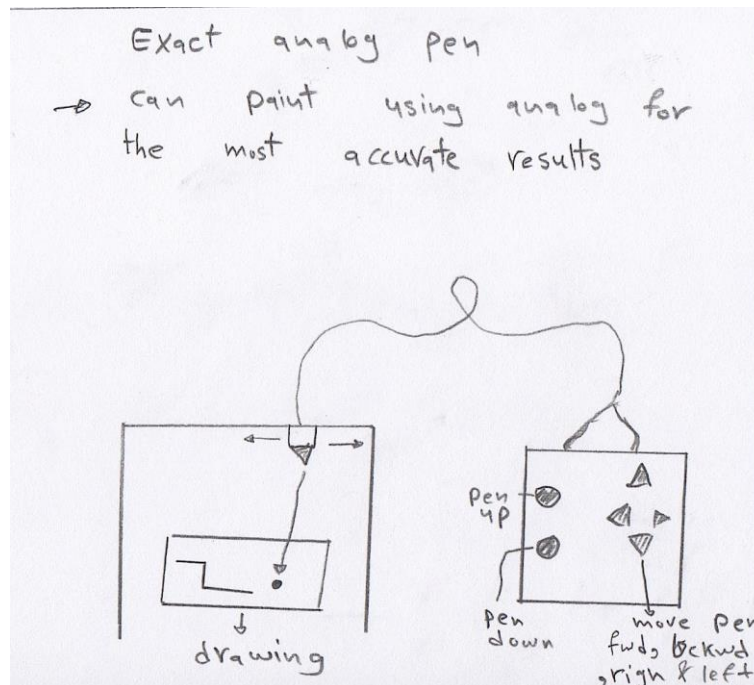 Exact analog pen
→ can paint using analog for
the most accurate results
pen
up
pen
down
drawing
move pen
fwd, bckwd
, righ & left